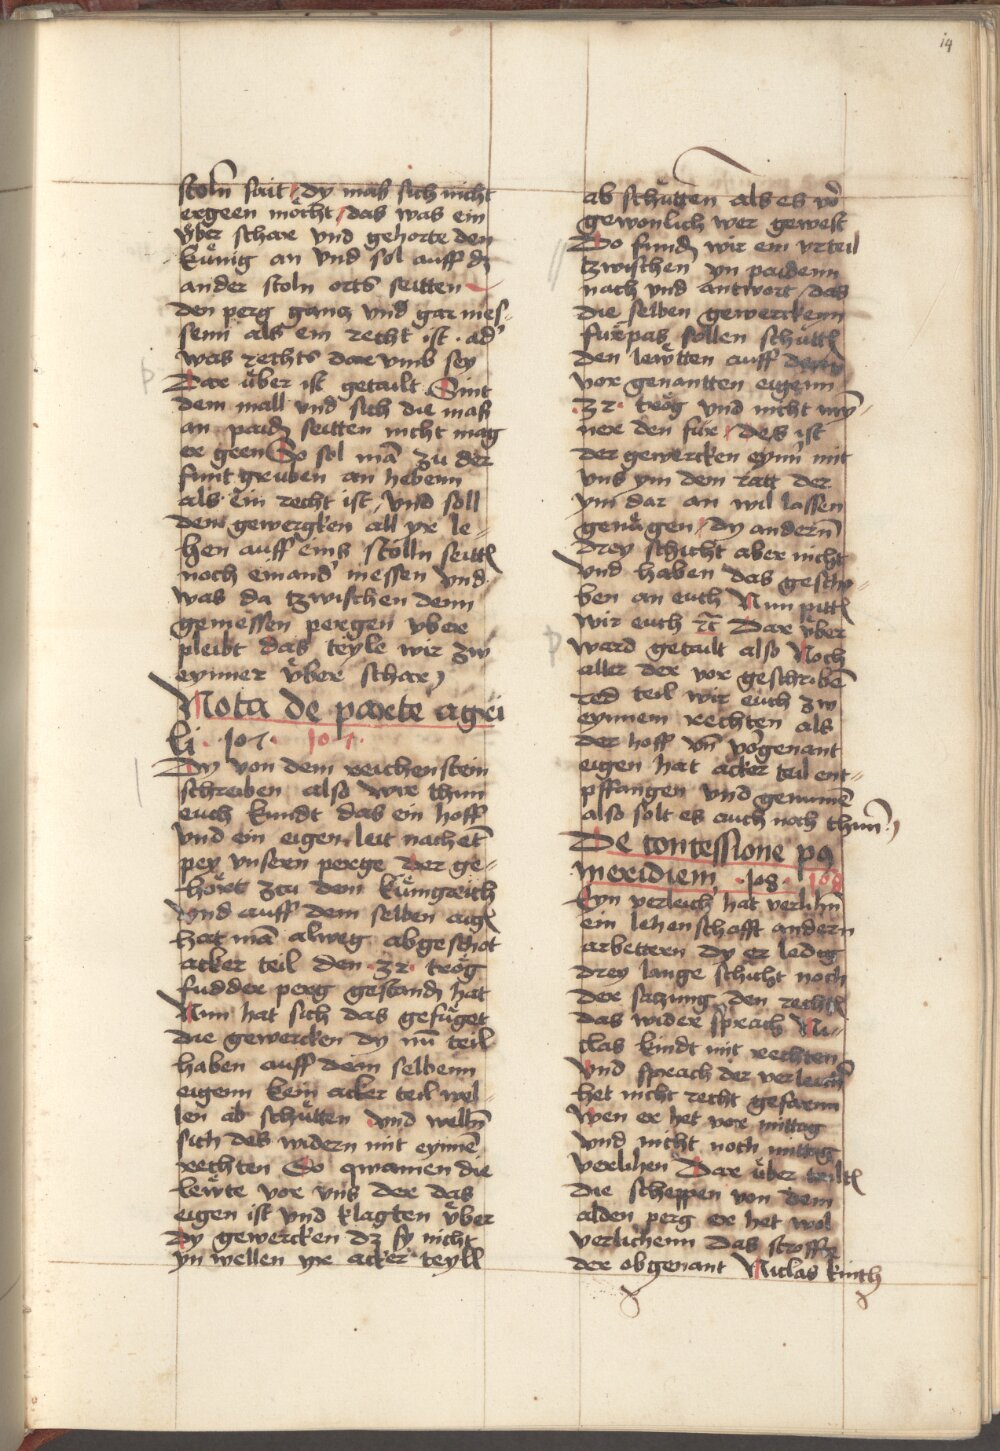 14
stoln sait / dy mass sich nicht
ergeen möcht / das was ein
vͤber schar vnd gehorte den
kuͤnig an vnd sol auff dz
ander stoln orts seitten
den perg gancz vnd gar mes-
senn als ein recht ist · ad'
was rechts dar vmb sey
Dar uͤber ist getailt Sint
dem mall vnd sich die mass
an paidn seitten nicht mag
er geen So sol mā zu der
funt gruben an hebenn
als ein recht ist / vnd soll
den gewergken all yr le-
hen auff eins stolln seittn
noch einand' messen vnd
was da tzwischen denn
gemessen pergen vber
pleibt das teyle wir zw
eynner vͤber schar
Nota de parte agri
li · 107 · 107 ·
Dy von dem reichenstein
schreiben also wir thun
euch kundt das ein hoff
vnd ein eigen leit nachet
pey vnsern perge der ge-
hort zcu dem kuͤnigreich
vnd auff dem selben aign
hat mā alweg abgeschot
acker teil den · 32 · troͤg
fudder perg gestandn hat
Nun hat sich das gefuͤget
die gewercken dy nū teil
haben auff dem selbenn
eigenn kein acker teil wel-
len ab schutten vnd welln
sich des widern mit eynnē
rechten So qwamen die
lewte vor vns der das
eigen ist vnd klagten vͤber
dy gewercken dz sy nicht
yn wellen yr acker teyll
ab schuͤtten als es vō
gewonlich wer gewest
Do fundn wir ein vrteil
tzwischen yn paidenn
nach vnd antwort / das
die selben gewerckenn
fuͤrpas sollen schuttn
den lewtten auff denn
vor genantten eigenn
· 32 · troͤg vnd nicht mý-
ner den fur / des ist
der gewercken eynn mit
vns yn dem ratt der
ym dar an wil lassen
genuͤgen / dy andernn
drey schicht aber nicht
vnd haben das geschri-
ben an euch Nun pittn
wir euch ꝛc Dar vͤber
ward getailt also Noch
aller der vor geschribē
red teil wir euch zw
eynnem rechten als
der hoff vn̄ vorgenant
eigen hat acker teil ent-
pffangen vnd genumē
also solt es auch noch thun
De concessione pꝰ
meridiem · 108 · 108
Eyn verleich' hat verlihn
ein lehenschafft andern
arbettern dy er ledig
drey lange schicht noch
der saczung den rechtn
das wider sprach Ni-
clas kindt mit rechten
vnd sprach der verleich'
het nicht recht gefarnn
wen er het vor mittag
vnd nicht noch mittag
verlihen Dar uͤber teiltn
die scheppen von dem
alden perg er het wol
verlichenn das stroffz
der obgenant Niclas kinth